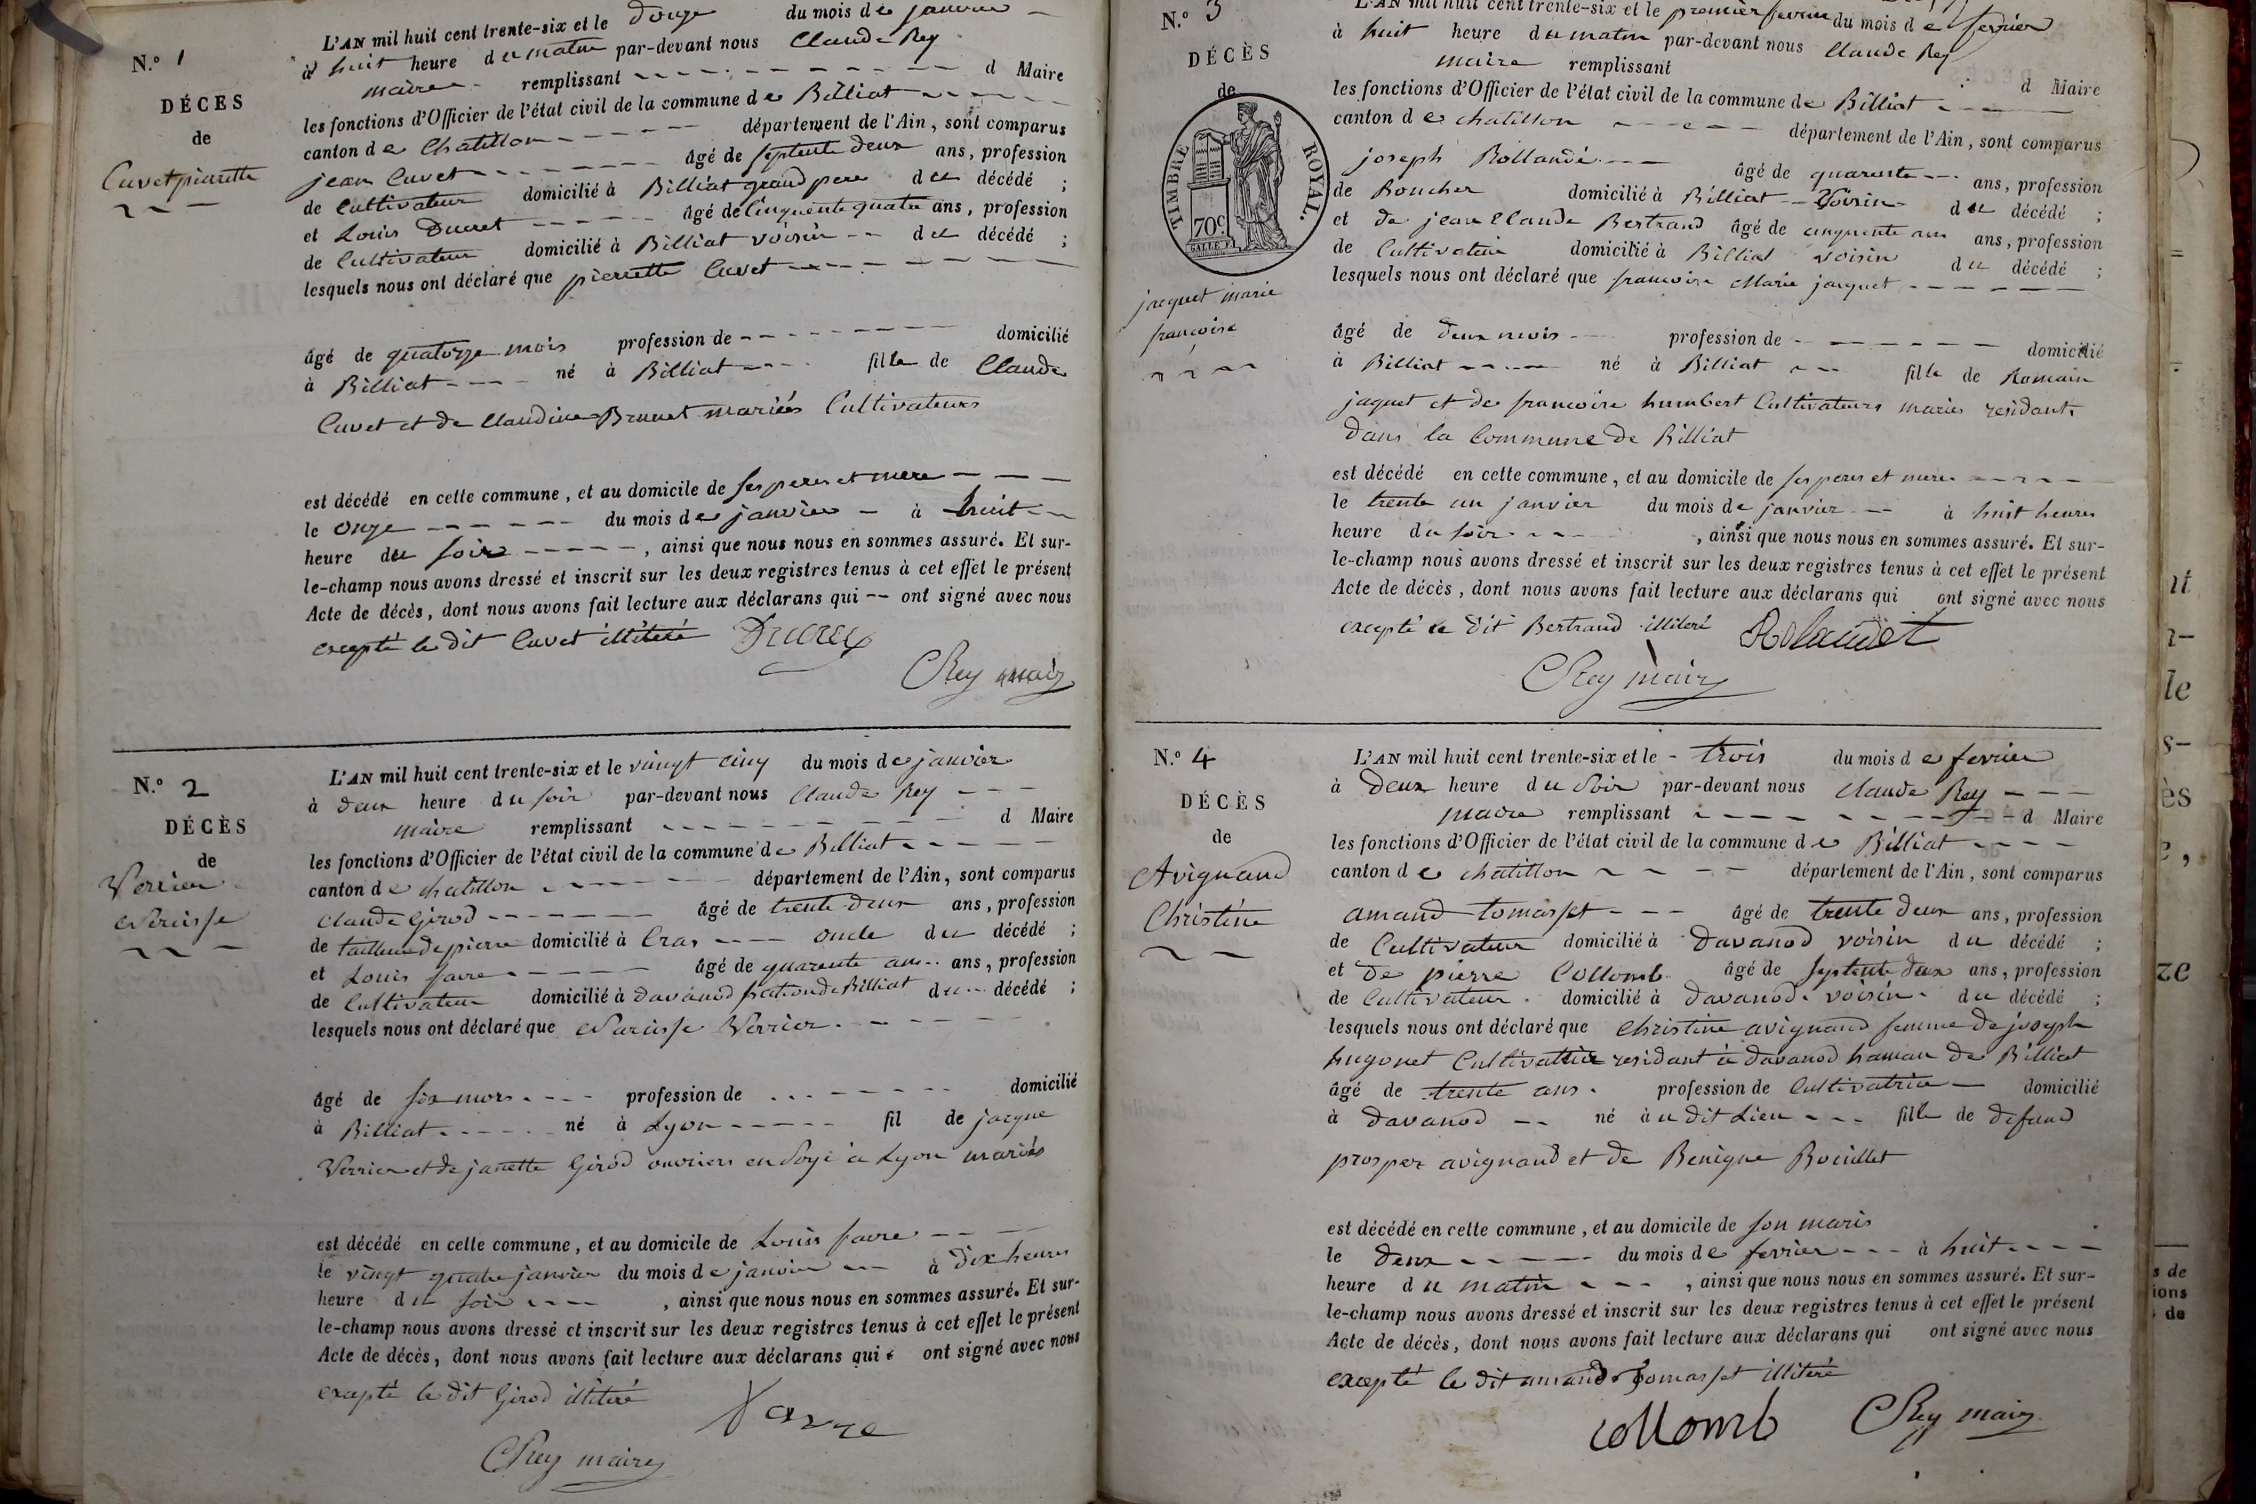 N.° 1
DÉCES
de
Cuvet pierette
L'AN mil huit cent trente-six et le douze du mois de janvier
à huit heure du matin par-devant nous Claude Rey
maire remplissant d Maire
les fonctions d'Officier de l'état civil de la commune de Billiat
canton de Chatillon département de l'Ain, sont comparus
jean Cuvet âgé de septente deux ans, profession
de Cultivateur domicilié à Billiat grand pere du décédé ;
et Louis Ducret âgé de Cinquente quatre ans, profession
de Cultivateur domicilié à Billiat voisin du décédé ;
lesquels nous ont déclaré que pierrette Cuvet
âgé de quatorze mois profession de domicilié
à Billiat né à Billiat fille de Claude
Cuvet et de Claudine Brunet mariés Cultivateurs
est décédé en cette commune, et au domicile de ses peres et mere
le onze du mois de janvier à huit
heure du soir, ainsi que nous nous en sommes assuré. Et sur-
le-champ nous avons dressé et inscrit sur les deux registres tenus à cet effet le présent
Acte de décès, dont nous avons fait lecture aux déclarans qui ont signé avec nous
excepté le dit Cuvet illiteré
CRey maire
N.° 2
DÉCÈS
de
Verrier
Narcisse
L'AN mil huit cent trente-six et le vingt cinq du mois de janvier
à deux heure du soir par-devant nous Claude Rey
maire remplissant d Maire
les fonctions d'Officier de l'état civil de la commune de Billiat
canton de chatillon département de l'Ain, sont comparus
Claude Girod âgé de trente deux ans, profession
de tailleur de pierre domicilié à Cras oncle du décédé ;
et Louis favre âgé de quarente ans ans, profession
de Cultivateur domicilié à davanod de Billiat du décédé ;
lesquels nous ont déclaré que Narcisse Verrier
âgé de six mois profession de domicilié
à Billiat né à Lyon fil de jacque
Verrier et de janette Girod ouvriers en soye à Lyon mariés
est décédé en cette commune, et au domicile de Louis favre
le vingt quatre janvier du mois de janvier à dix heures
heure du soir, ainsi que nous nous en sommes assuré. Et sur-
le-champ nous avons dressé et inscrit sur les deux registres tenus à cet effet le présent
Acte de décès, dont nous avons fait lecture aux déclarans qui ont signé avec nous
excepté le dit Girod illiteré
Favre
CRey maire
N.° 3
DÉCÈS
de
TIMBRE ROYAL.
70c
jacquet marie
francoise
L'AN mil huit cent trente-six et le premier fevrier du mois de fevrier
à huit heure du matin par-devant nous Claude Rey
maire remplissant d Maire
les fonctions d'Officier de l'état civil de la commune de Billiat
canton de chatillon département de l'Ain, sont comparus
joseph Rollandé âgé de quarente ans, profession
de Boucher domicilié à Billiat Voisin du décédé ;
et de jean Claude Bertrand âgé de cinquente ans ans, profession
de Cultivateur domicilié à Billiat voisin du décédé ;
lesquels nous ont déclaré que francoise Marie jacquet
âgé de deux mois profession de domicilié
à Billiat né à Billiat fille de Romain
jaquet et de francoise humbert Cultivateurs maries residants
dans la Commune de Billiat
est décédé en cette commune, et au domicile de ses peres et mere
le trente un janvier du mois de janvier à huit heures
heure du soir, ainsi que nous nous en sommes assuré. Et sur-
le-champ nous avons dressé et inscrit sur les deux registres tenus à cet effet le présent
Acte de décès, dont nous avons fait lecture aux déclarans qui ont signé avec nous
excepté le dit Bertrand illiteré Rolandet
CRey maire
N.° 4
DÉCÈS
de
Avignand
Christine
L'AN mil huit cent trente-six et le trois du mois de fevrier
à deux heure du soir par-devant nous Claude Rey
maire remplissant d Maire
les fonctions d'Officier de l'état civil de la commune de Billiat
canton de chatillon département de l'Ain, sont comparus
amand tomasset âgé de trente deux ans, profession
de Cultivateur domicilié à davanod voisin du décédé ;
et de pierre Collomb âgé de septente deux ans, profession
de Cultivateur domicilié à davanod voisin du décédé ;
lesquels nous ont déclaré que Christine avignand femme de joseph
hugonet Cultivatrice residant à davanod hamau de Billiat
âgé de trente ans profession de Cultivatrice domicilié
à davanod né à u dit Lieu fille de defund
prosper avignand et de Benigne Bouillet
est décédé en cette commune, et au domicile de son maris
le deux du mois de fevrier à huit
heure du matin, ainsi que nous nous en sommes assuré. Et sur-
le-champ nous avons dressé et inscrit sur les deux registres tenus à cet effet le présent
Acte de décès, dont nous avons fait lecture aux déclarans qui ont signé avec nous
excepté le dit amand tomasset illiteré
collomb CRey maire